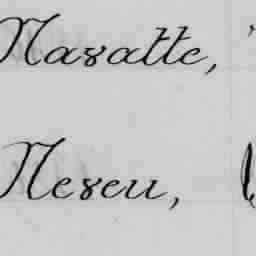 Navatte,
Neveu,